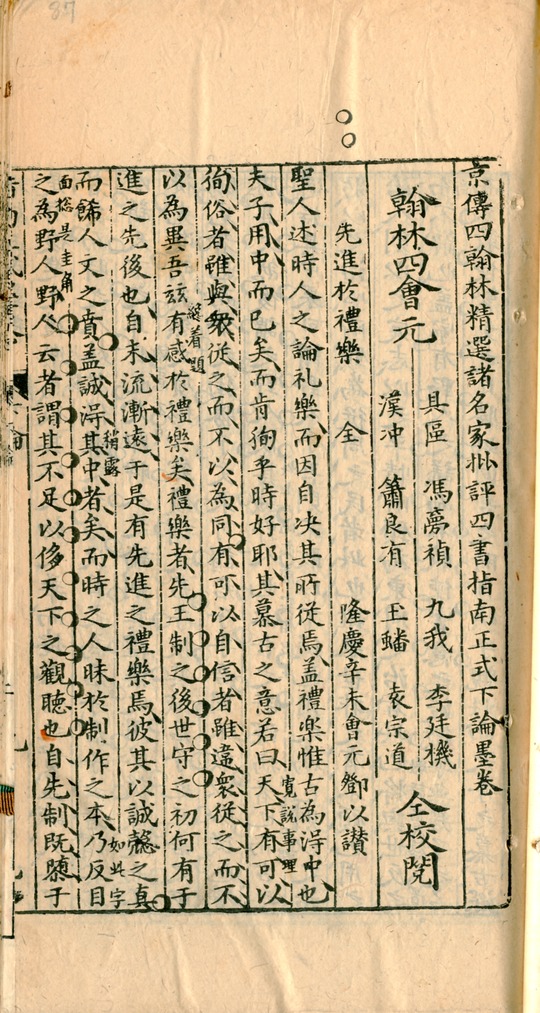 京傳四翰林精選諸名家批評四書指南正式下論墨卷
翰林四會元
具區 馮夢禎 九我 李廷機
漢冲 簫良有 玉蟠 袁宗道
仝校閱
先進於禮樂 全 隆慶辛未會元鄧以讃
聖人述時人之論礼樂而因自决其所從焉盖禮樂惟古為淂中也
寛説事理
夫子用中而已矣而肯徇乎時好耶其慕古之意若曰天下有可以
徇俗者雖與衆從之而不以為同有可以自信者雖違衆從之而不
以為異吾兹有感於禮樂矣禮樂者先王制之後世守之初何有于
進之先後也自末流漸遠于是有先進之禮樂焉彼其以誠慤之真
而餙人文之賁盖誠淂其中者矣而時之人昧於制作之本乃反目
如此字
之為野人野人云者謂其不足以侈天下之觀聽也自先制既隳于
面捴是圭角
37